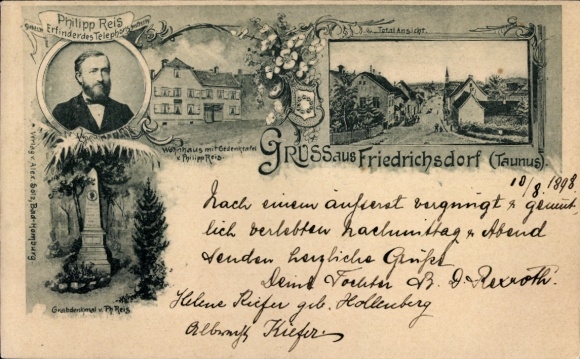 Philipp Reis
Erfinder des Telephons
Totalansicht.
Wohnhaus mit Gedenktafel
v. Philipp Reis.
GRUSS aus Friedrichsdorf (Taunus).
Verlag v. Alex. Götz, Bad-Homburg.
Grabdenkmal v. Ph. Reis.
10/8. 1898
Nach einem äußerst vergnügt u. gemüt
lich verlebten Nachmittag u. Abend
senden herzliche Grüße
Deine Tochter B. D. Rexroth.
Helene Kiefer geb. Hollenberg
Albrecht Kiefer